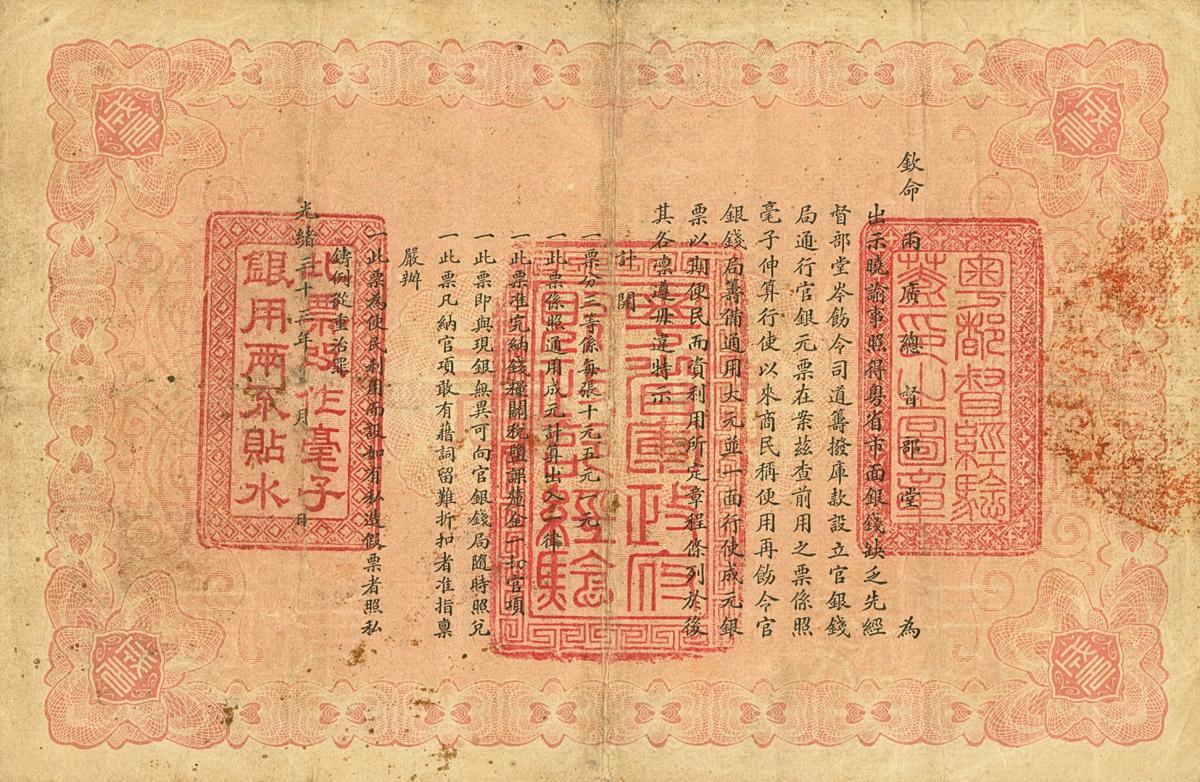 欽命
兩廣總督部堂 為
出示曉諭事照得粵省市面銀錢缺乏先經
督部堂岑飭令司道籌撥庫款設立官銀錢
局通行官銀元票在案茲查前用之票係照
毫子伸算行使以來商民稱便用再飭令官
銀錢局籌備通用大元並一面行使成元銀
票以期便民而資利用所定章程條列於後
其各凜遵毋違特示
計開
一票分三等係每張十元五元一元
一此票係照通用成元計算出入一律
一此票准完納錢糧關稅鹽課釐金一切官項
一此票即與現銀無異可向官銀錢局隨時照兌
一此票凡納官項敢有藉詞留難折扣者准指稟
嚴辦
一此票為使民利用而設如有私造假票者照私
鑄例從重治罪
光緒三十二年 月 日
粵都督經驗
蔣尊簋印
粵省軍政府
財政部經驗
此票改作毫子
銀用兩不貼水